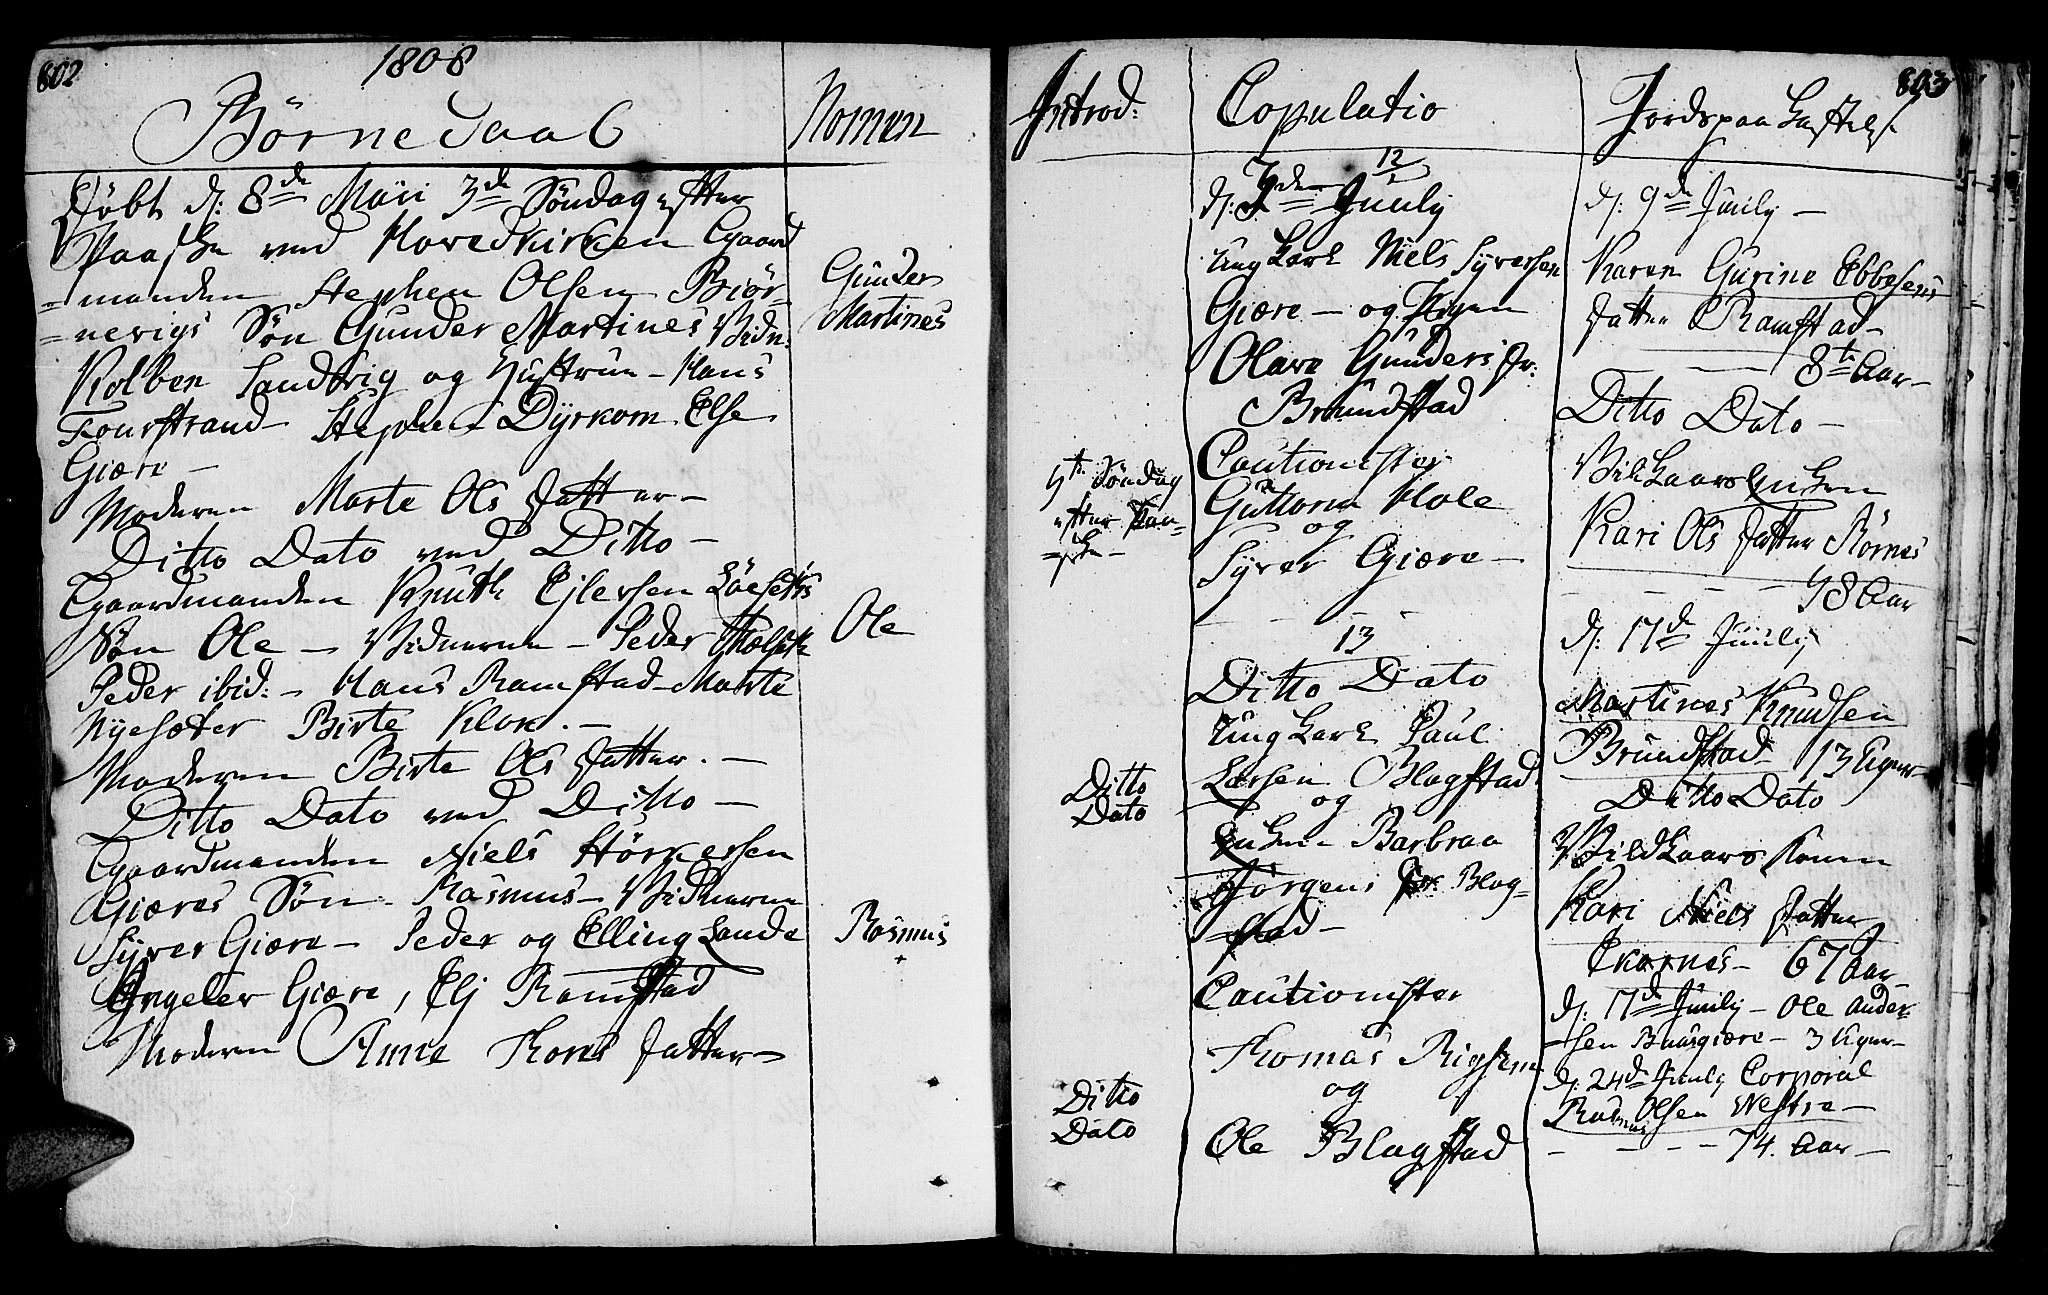 802
1808
Børne Daab
Nomen
Døbt d: 8de Maii 3de Søndag efter
Paaske ved Hovedkirken Gaard
=manden Stephen Olsen Biør-
=nevigs Søn Gunder Martines Vidn:
Kolben Sandvig og Hustrue - Hans
Fourstrand - Stephen Dyrkorn Else
Giære -
Moderen Marte Ols Datter -
Gunder
Martines
Ditto Dato ved Ditto -
Gaardmanden Knuth Ejlersen
Søn Ole - Vidnerne - Peder
Peder ibid: - Hans Ramstad - Marte
Nyesæter Birte Klok. -
Moderen Birte Ols Datter. -
Ole
Ditto Dato ved Ditto -
Gaardmanden Niels Størkersen
Giæres Søn - Rasmus - Vidnerne
Syver Giære - Peder og Elling Lande
Giære, Elj Ramstad
Moderen Anne Datter -
Rasmus
+
803
Introd:
5te Søndag
efter Paa-
=ske -
Ditto
Dato
Ditto
Dato
Copulatio
12
d: 3de Junly
Ung Karl Niels Syversen
Giære - og Pigen
Olave Gunders Dr:
Brundstad
Cautionister
Guttorm Hole
og
Syver Giære -
13
Ditto Dato
Ung Karl Paul
Larsen Blagstad
og
Enken Barbraa
Jørgens Dr: Blag-
stad -
Cautionister
Thomas
og
Ole Blagstad
Jordspaa Kastelse
d: 9de Junly -
Karen Gurine Ebbesens
Datter Ramstad -
8te Aar -
Ditto Dato -
Vilkaars Enken
Kari Ols Datter Rørnes
78 Aar
d: 17de Junly
Martines Knudsen
Brundstad - 13 Uger -
Ditto Dato
Vildkaars Konen
Kari Niels Datter
Ekornes - 67 Aar
d: 17de Junly - Ole Ander-
sen Buusgiære - 3 Uger -
d: 24de Junly Corporal
Rasmus Olsen Westre -
- - - 74. Aar -